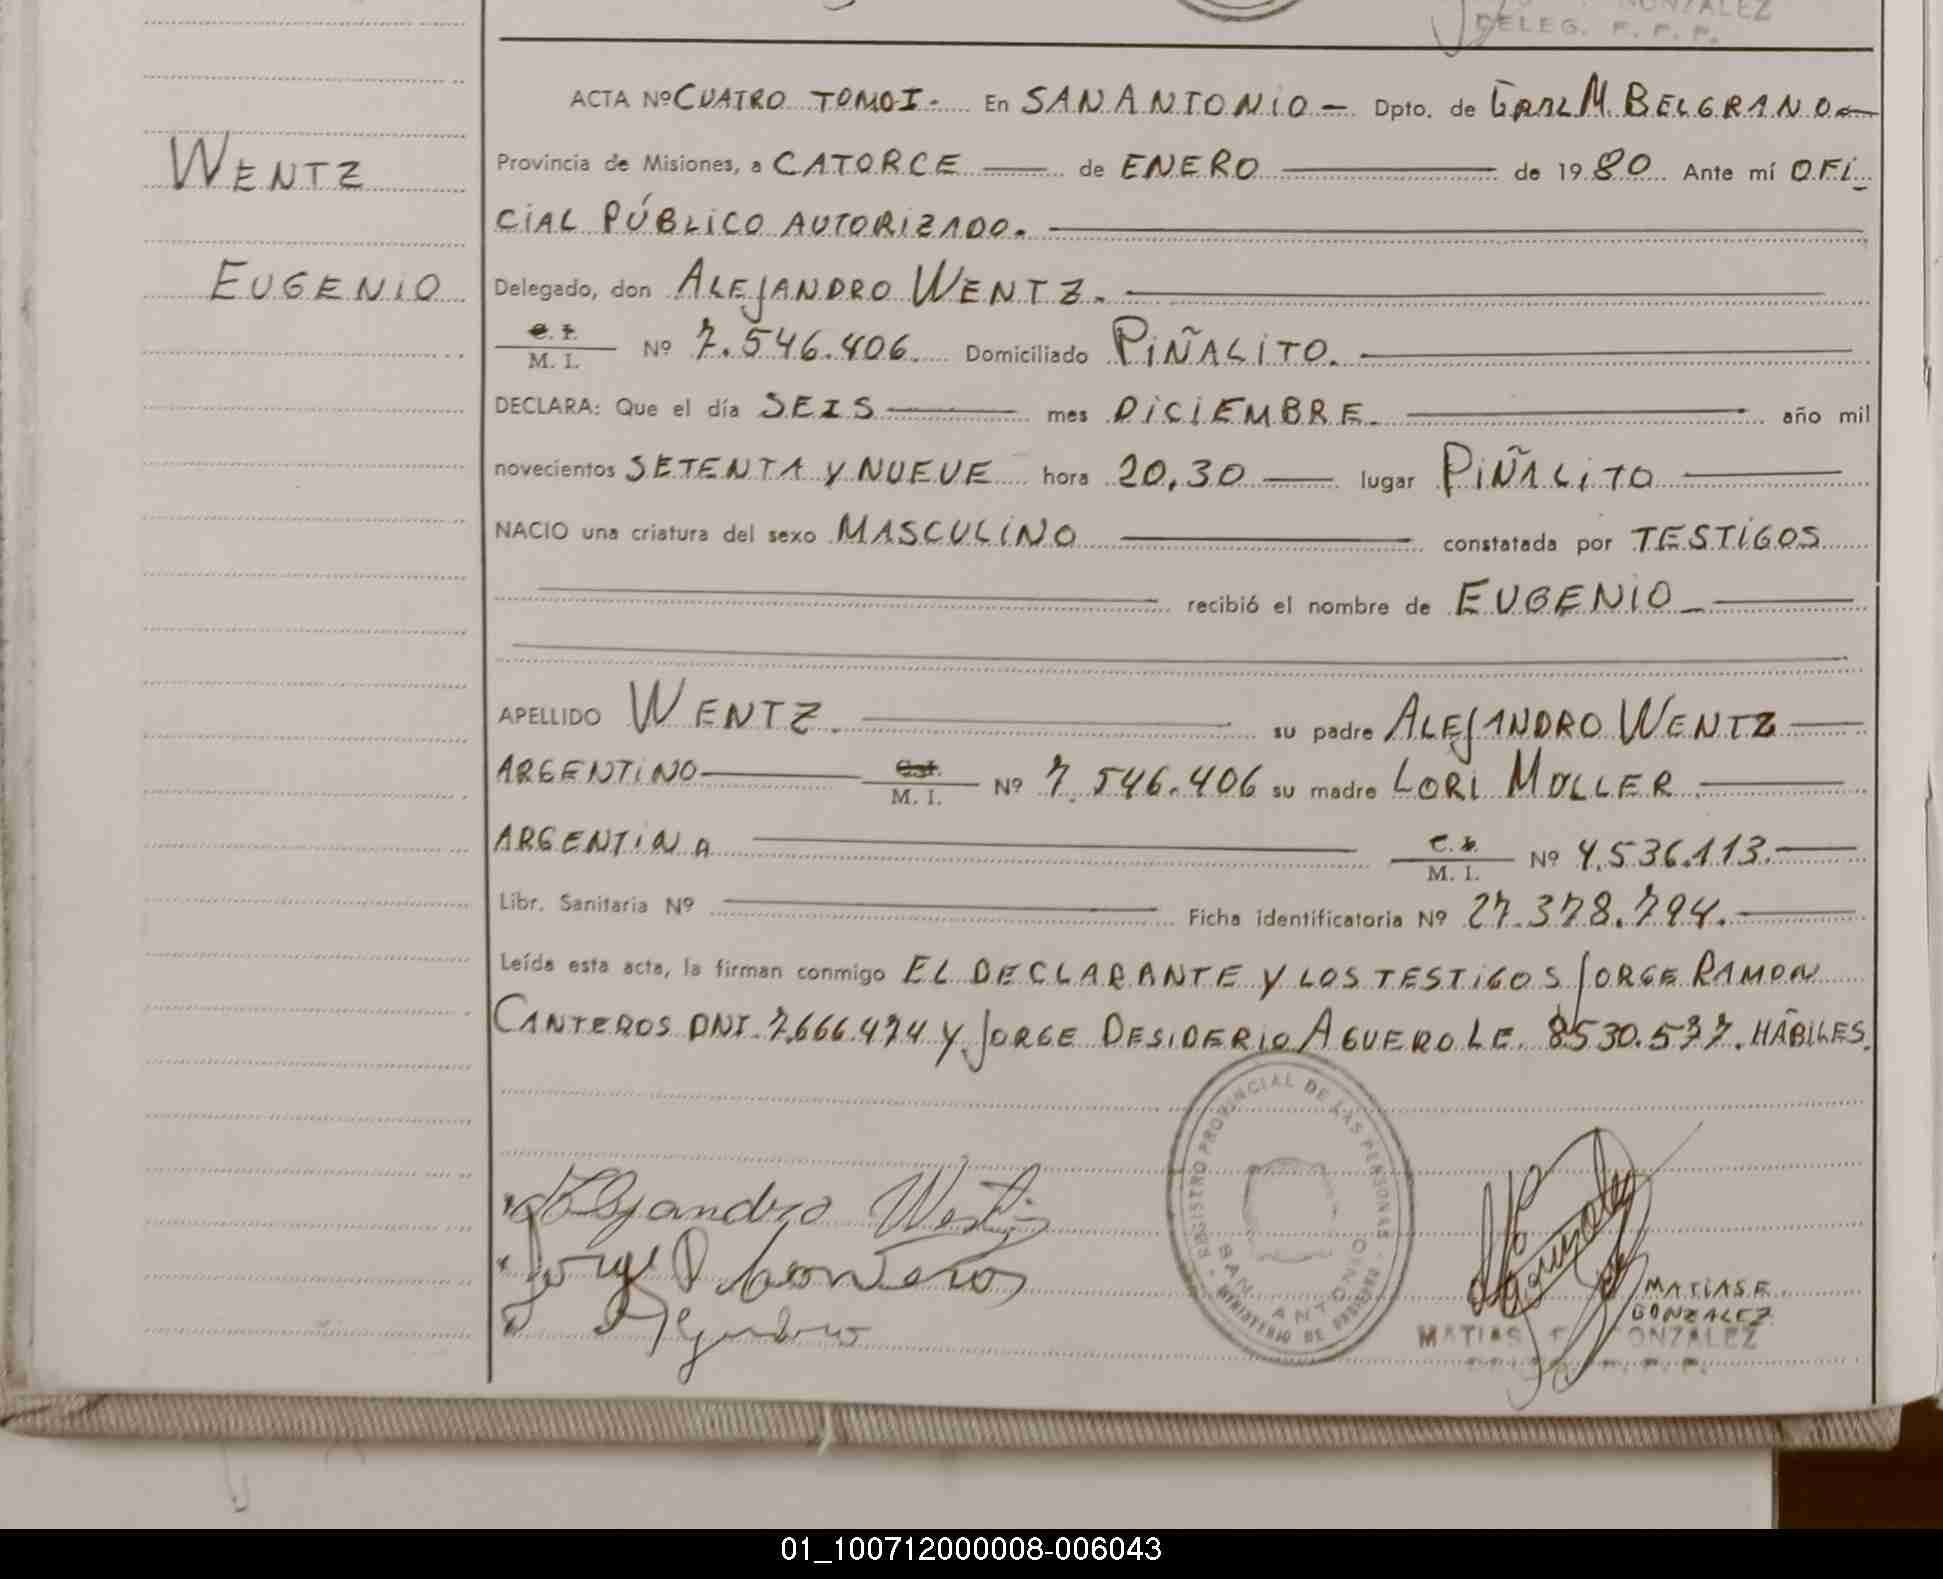 GONZALEZ
DELEG. F. F. P.
ACTA Nº CUATRO TOMO I.- En SAN ANTONIO - Dpto. de GRAL M. BELGRANO.-
WENTZ
Provincia de Misiones, a CATORCE de ENERO de 1980 Ante mí OFI-
CIAL PÚBLICO AUTORIZADO.
EUGENIO
Delegado, don ALEJANDRO WENTZ.
C. I.
M. I. Nº 7.546.406. Domiciliado PIÑALITO.
DECLARA: Que el día SEIS mes DICIEMBRE. año mil
novecientos SETENTA Y NUEVE hora 20,30 lugar PIÑALITO
NACIO una criatura del sexo MASCULINO constatada por TESTIGOS
recibió el nombre de EUGENIO
APELLIDO WENTZ. su padre ALEJANDRO WENTZ
ARGENTINO C. I. M. I. Nº 7.546.406 su madre LORI MULLER.
ARGENTINA C. I. M. I. Nº 4.536.113.
Libr. Sanitaria Nº Ficha identificatoria Nº 27.378.794.
Leída esta acta, la firman conmigo EL DECLARANTE Y LOS TESTIGOS JORGE RAMON
CANTEROS DNI. 7.666.474 Y JORGE DESIDERIO AGUERO L.E. 8530.577. HÁBILES.
REGISTRO PROVINCIAL DE LAS PERSONAS
SAN ANTONIO
MINISTERIO DE GOBIERNO
Alejandro Wentz
Jorge R Canteros
Aguero
MATIAS F.
GONZALEZ
MATIAS F. GONZALEZ
DELEG. F. F. P.
01_100712000008-006043